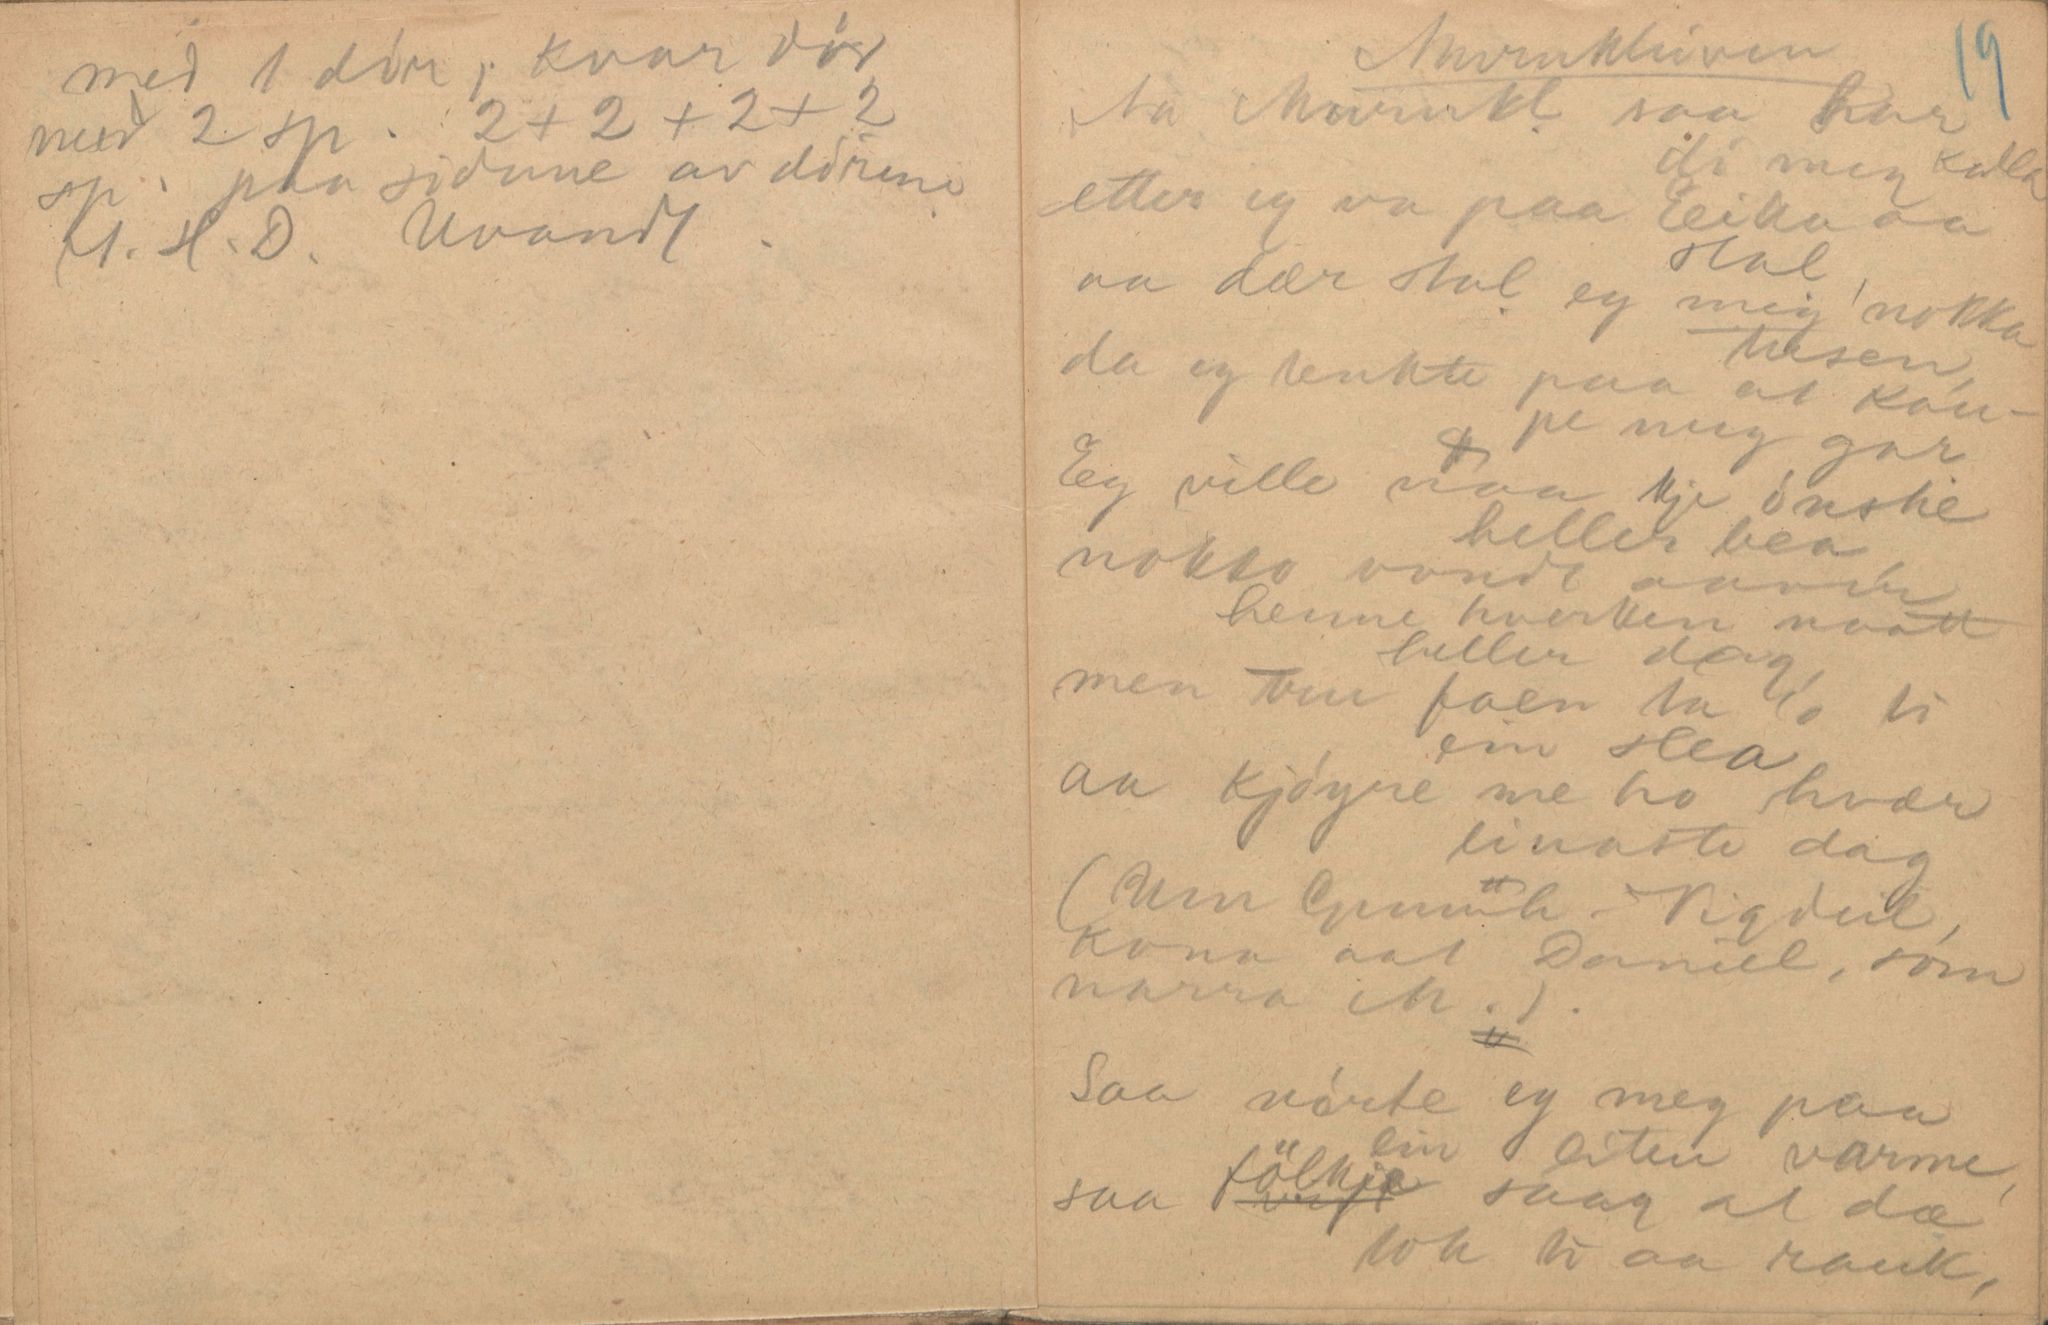 med 1 dör, kvar dör
med 2 sp. 2 + 2 + 2 + 2
sp. paa sidune av dörene
H. D. Uvandt.
19
Murukleiven
Aa Murukl. saa har
di meg kalla
etter eg va paa Eeika aa
stal,
aa dær stal eg meig nokka
husen,
da eg tenkte paa at kau-
pe meg gar
Eg ville naa kje önske
heller bea
nokko vondt aavær
henne hverken naatt
heller dag,
men trur faen ta o ti
ein slea
aa kjöyre me ho hvær
einaste dag
(Um Gunnh - Vigdeil,
kona aat Daniel, som
narra M.).
Saa nörte eg meg paa
ein liten varme,
saa fölkje saag at dæ
tok ti aa rauk,